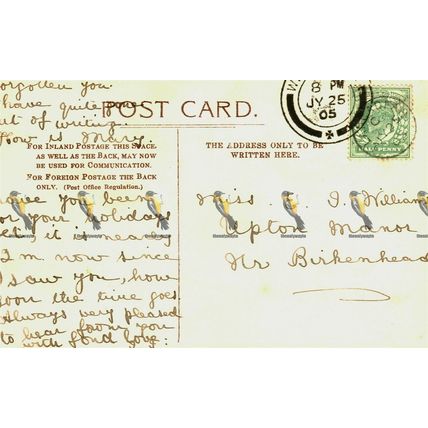 forgotten you
have quite gone
out of writing.
How is Mary.
have you been
for your holidays
yet, it is nearly
12 m now since
I saw you, how
soon the time goes
Always very pleased
to hear from you
with fond love:
POST CARD.
FOR INLAND POSTAGE THIS SPACE,
AS WELL AS THE BACK, MAY NOW
BE USED FOR COMMUNICATION.
FOR FOREIGN POSTAGE THE BACK
ONLY. (Post Office Regulation.)
THE ADDRESS ONLY TO BE
WRITTEN HERE.
Miss. I. William
Upton Manor
Nr Birkenhead
8 PM
JY 25
05
HALF PENNY